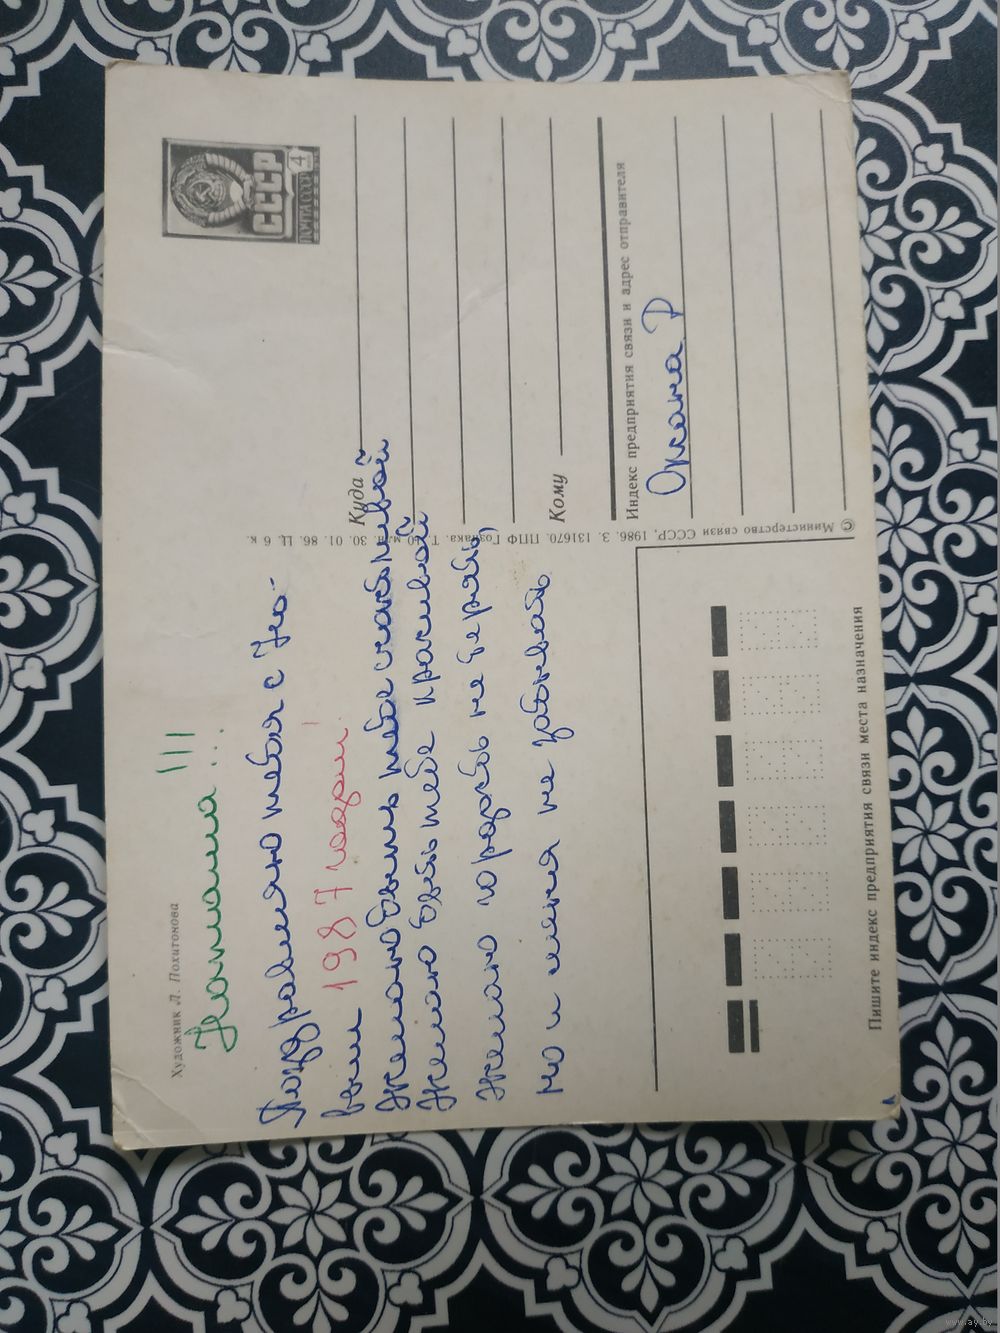 Художник Л. Похитонова
Наташа!!!
Поздравляю тебя с Но-
вым 1987 годом!
Желаю быть тебе счастливой
Желаю быть тебе красивой
Желаю гордость не терять,
но и меня не забывать
ПОЧТА СССР
4
СССР
Куда
Кому
Индекс предприятия связи и адрес отправителя
Р
© Министерство связи СССР, 1986. З. 131670. ППФ Гознака. Т. млн. 30. 01. 86. Ц. 6 к.
Пишите индекс предприятия связи места назначения
www.ay.by